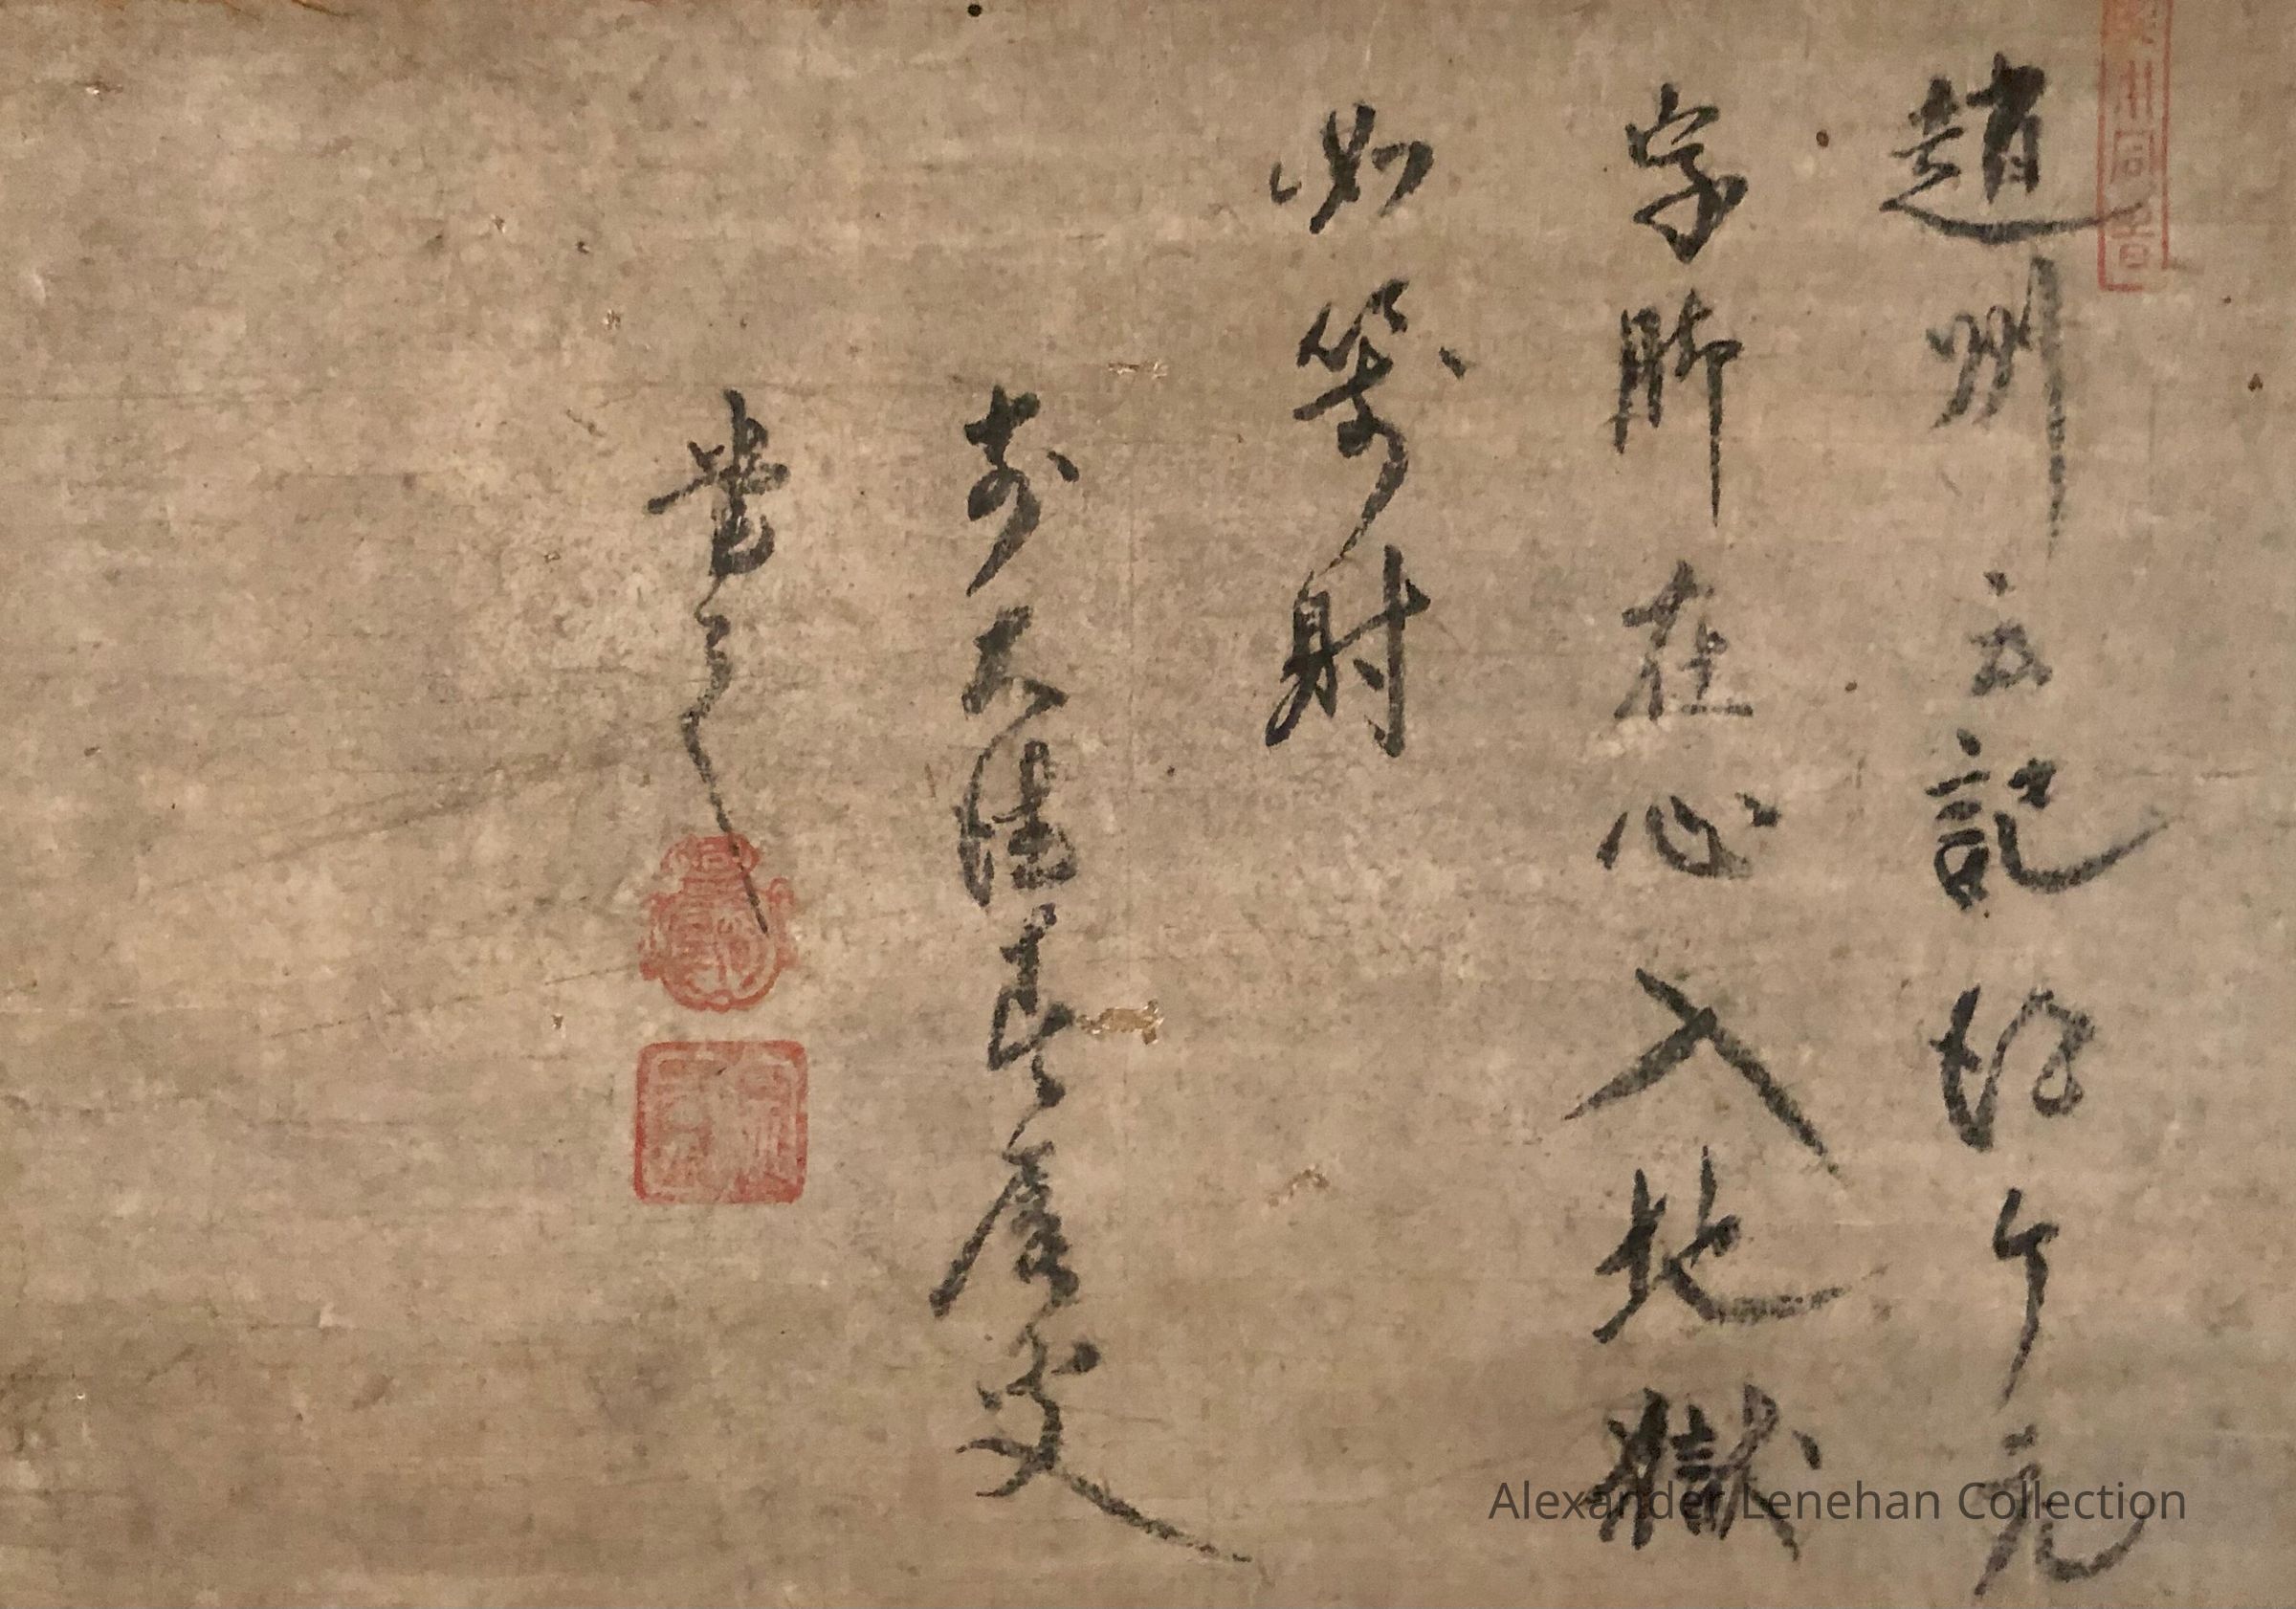 趙州云記得个元
字脚在心入地獄
如箭射
前大德真庵叟
書之
Alexander Lenehan Collection